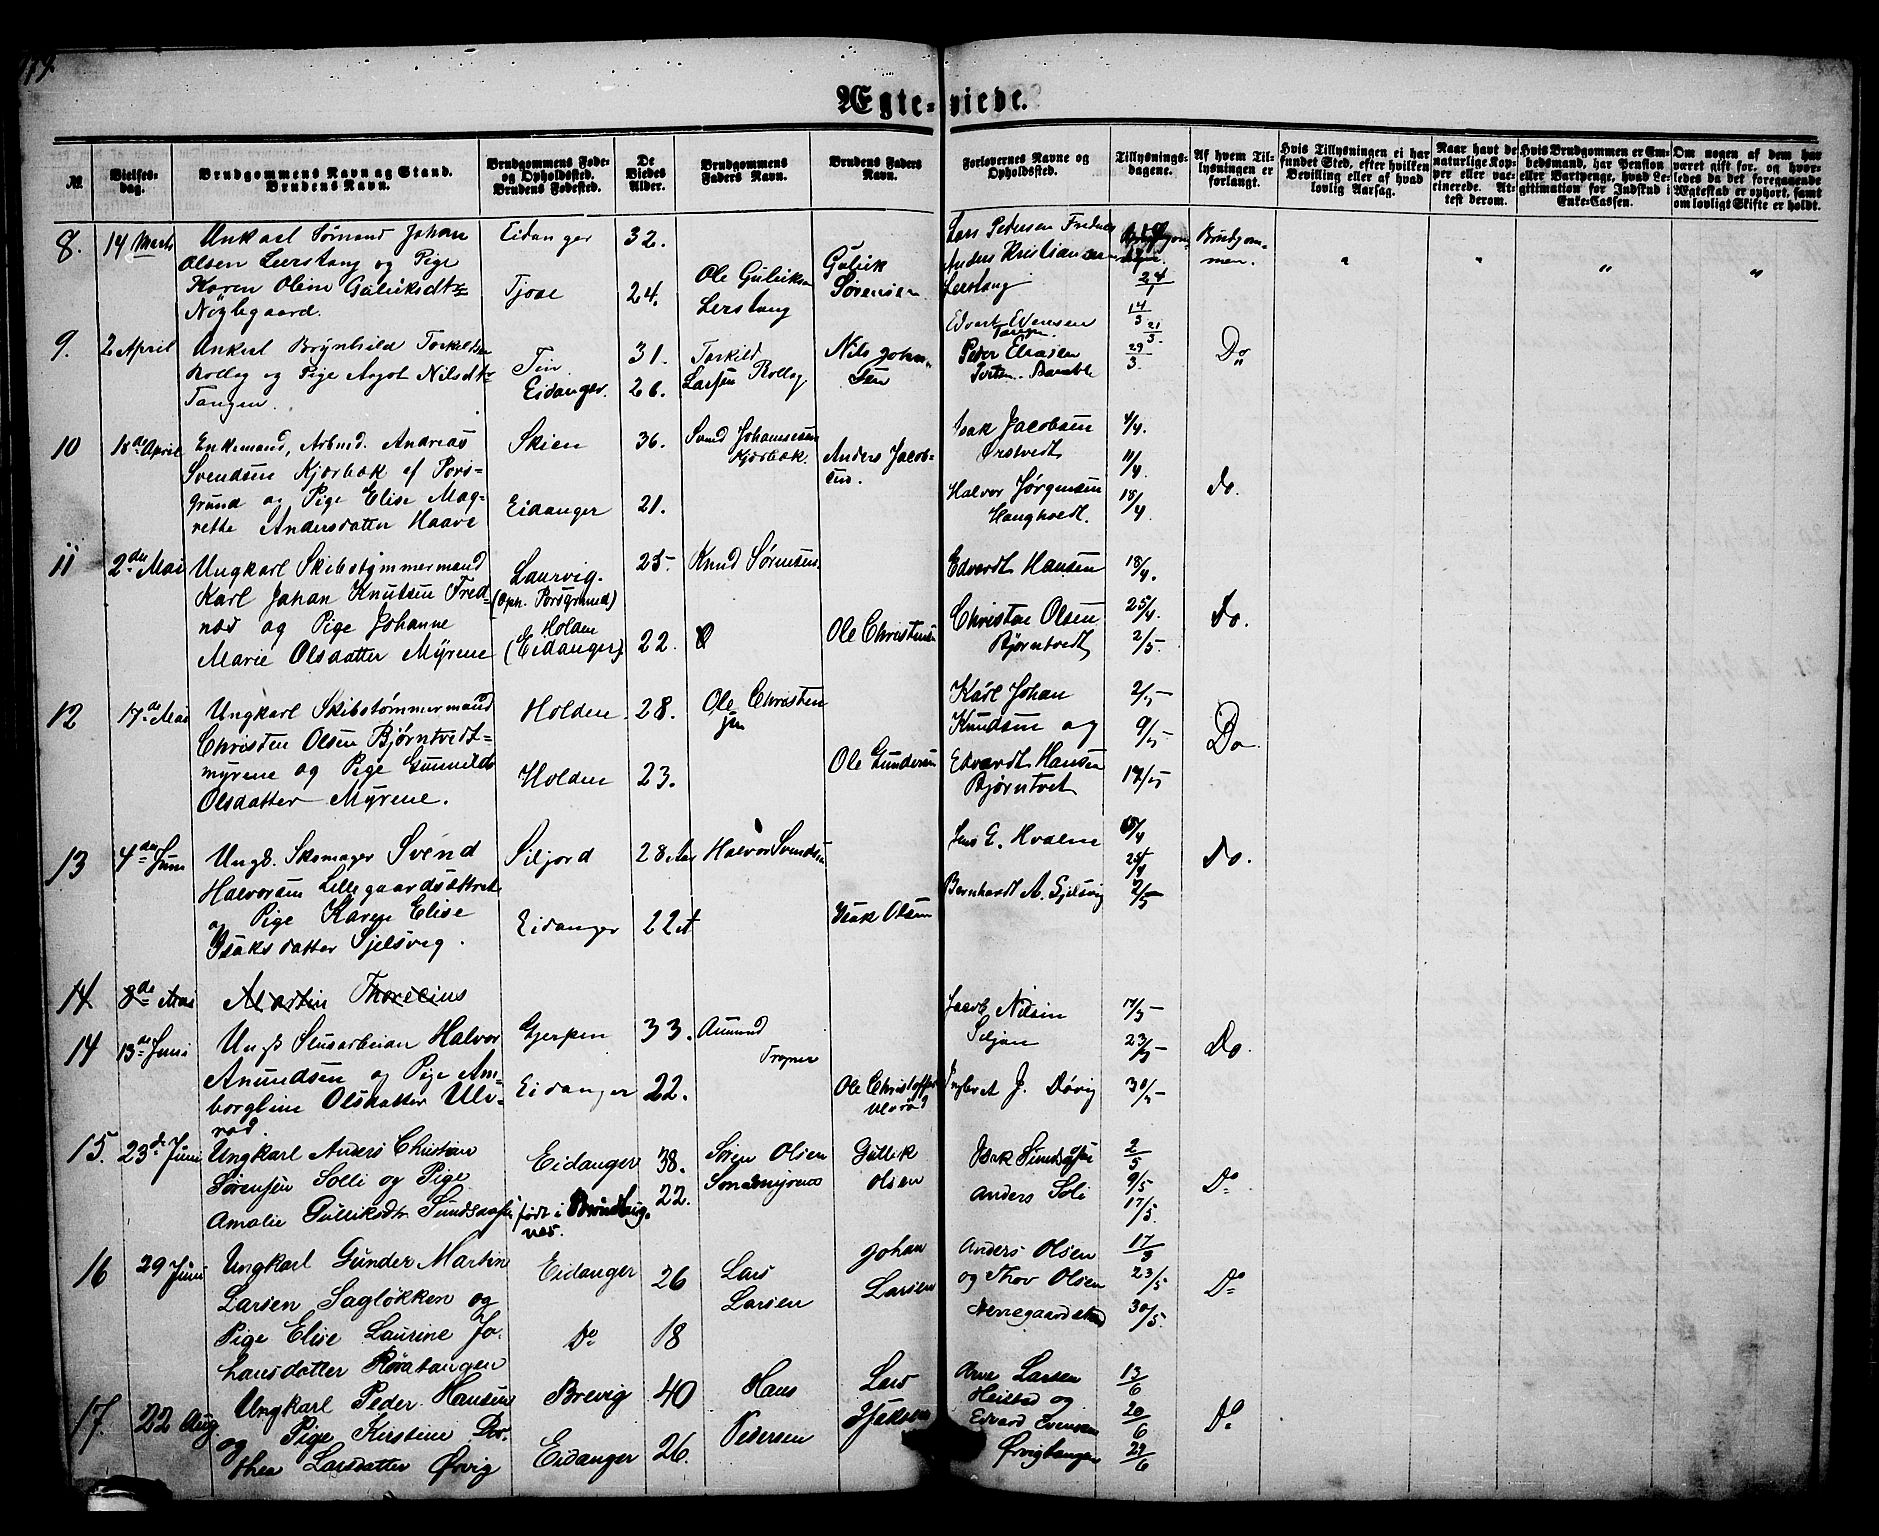 Ægte-viede.
№
Vielses-dag.
Brudgommens Navn og Stand. Brudens Navn.
Brudgommens Føde- og Opholdsted. Brudens Fødested.
De Viedes Alder.
Brudgommens Faders Navn.
Brudens Faders Navn.
Forlovernes Navne og Opholdsted.
Tillysnings-dagene.
Af hvem Tillysningen er forlangt.
Hvis Tillysningen ei har fundet Sted, efter hvilken Bevilling eller af hvad lovlig Aarsag.
Naar havt de naturlige Kopper eller vaccinerede. Attest derom.
Hvis Brudgommen er Embedsmand, har Pension eller Vartpenge, hvad Legitimation for Indskud i Enke-Cassen.
Om nogen af dem har været gift før, og hvorledes da det foregaaende Ægteskab er ophørt, samt om lovligt Skifte er holdt.
8. 14 Marts Unkarl Sømand Johan Eidanger 32. Lars Pedersen Brudgom-
Olsen Leerstang og Pige Ole Guliksen Gulik Anders Kristiansen men.
Karen Oline Guliksdtr Tjøse 24. Lerstang Sørensen Lerstang 24/1
Nøglegaard.
9. 2 April Unkarl Brynhild Torkildsen Tin 31. Torkild Nils John- Edvart Evensen 14/3 21/3 Do
Rollag og Pige Aagot Nilsdtr Eidanger. 26. Larsen Rollag sen Peder Eliasen 29/3
Tangen.
10 18de April Enkemand, Arbmd. Andreas Skien 36. Svend Johannesen Anders Jacob- Isak Jacobsen 4/4.
Svendsen Kjørbæk af Pors- Kjørbæk. sen. Ørstvedt 11/4.
grund og Pige Elise Mag- Eidanger 21. Halvor Jørgensen 18/4 Do.
rethe Andersdatter Haave Haugholdt.
11 2den Mai Ungkarl Skibstømmermand Laurvig. 25 Knud Sørensen. Edvardt Hansen 18/4.
Karl Johan Knutsen Fred- (Oph. Porsgrund) Christen Olsen 25/4. Do.
næs og Pige Johanne Holden Bjørntvedt 2/5.
Marie Olsdatter Myrene (Eidanger) 22. Ole Christensen
12 17de Mai Ungkarl Skibstømmermand Holden 28. Ole Christen Karl Johan 2/5
Christen Olsen Bjørntvedt- sen Knudsen og 9/5 Do.
myrene og Pige Gunnild Holden 23. Ole Gundersen Edvardt Hansen 17/5
Olsdatter Myrene. Bjørntvet
13 4de Juni Ungk. Skomager Svend Siljord 28 Aar Halvor Svendsen Jens G. Hvalen 18/4 Do.
Halvorsen Lillegaardsættret 25/4
og Pige Karen Elise Eidanger 22 A Isak Olsen Bernhardt A. Gjelsvig 2/5
Isaksdatter Sjelsvig.
14 8de Mai Martin Thorelius
14 13de Juni Ungk Slusarbeian Halvor Gjerpen 33. Amund Jacob Nilsen 17/5
Amundsen og Pige Am- Siljan 23/5 Do.
borgline Olsdatter Ulv- Eidanger 22. Ole Christoffer J. Døvig 30/5
rød.
15. 23de Juni Ungkarl Anders Christian Eidanger 38. Søren Olsen Gullik Isak 2/5
Sørensen Solli og Pige 22. olsen Anders Soli 9/5 Do
Amalie Gulliksdtr født i 17/5.
16 29 Juni Ungkarl Gunder Martin Eidanger 26 Lars Johan Anders Olsen 17/5
Larsen Sagløkken og Larsen Larsen og Thov Olsen 23/5 Do
Pige Elise Laurine Jo- Do 18 30/5.
hansdatter Røratangen
17. 22 Aug. Ungkarl Peder Hansen Brevig 40 Hans Lars Arne Larsen 13/6
og Pige Kirstine Do- Pedersen Isaksen Heistad og 20/6 Do
thea Larsdatter Ørvig Eidanger 26. Edvard Evensen 29/6
Ørvigtangen